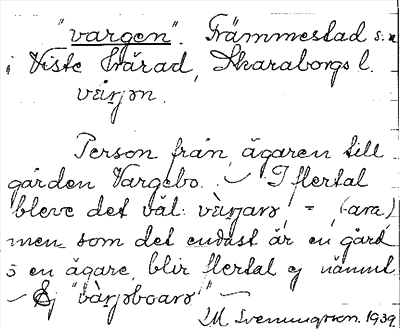 "vargen". Främmestad s:n
i Viste härad, Skaraborgs l.
Person från, ägaren till
gården Vargebo. – I flertal
bleve det väl: = (-ara)
men som det endast är en gård
o en ägare, blir flertal ej nämnt.
– Ej
M Svenningson. 1939